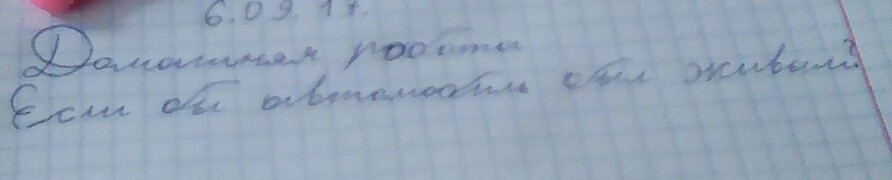 6.09.17.
Домашняя работа
Если бы автомобиль был живым?